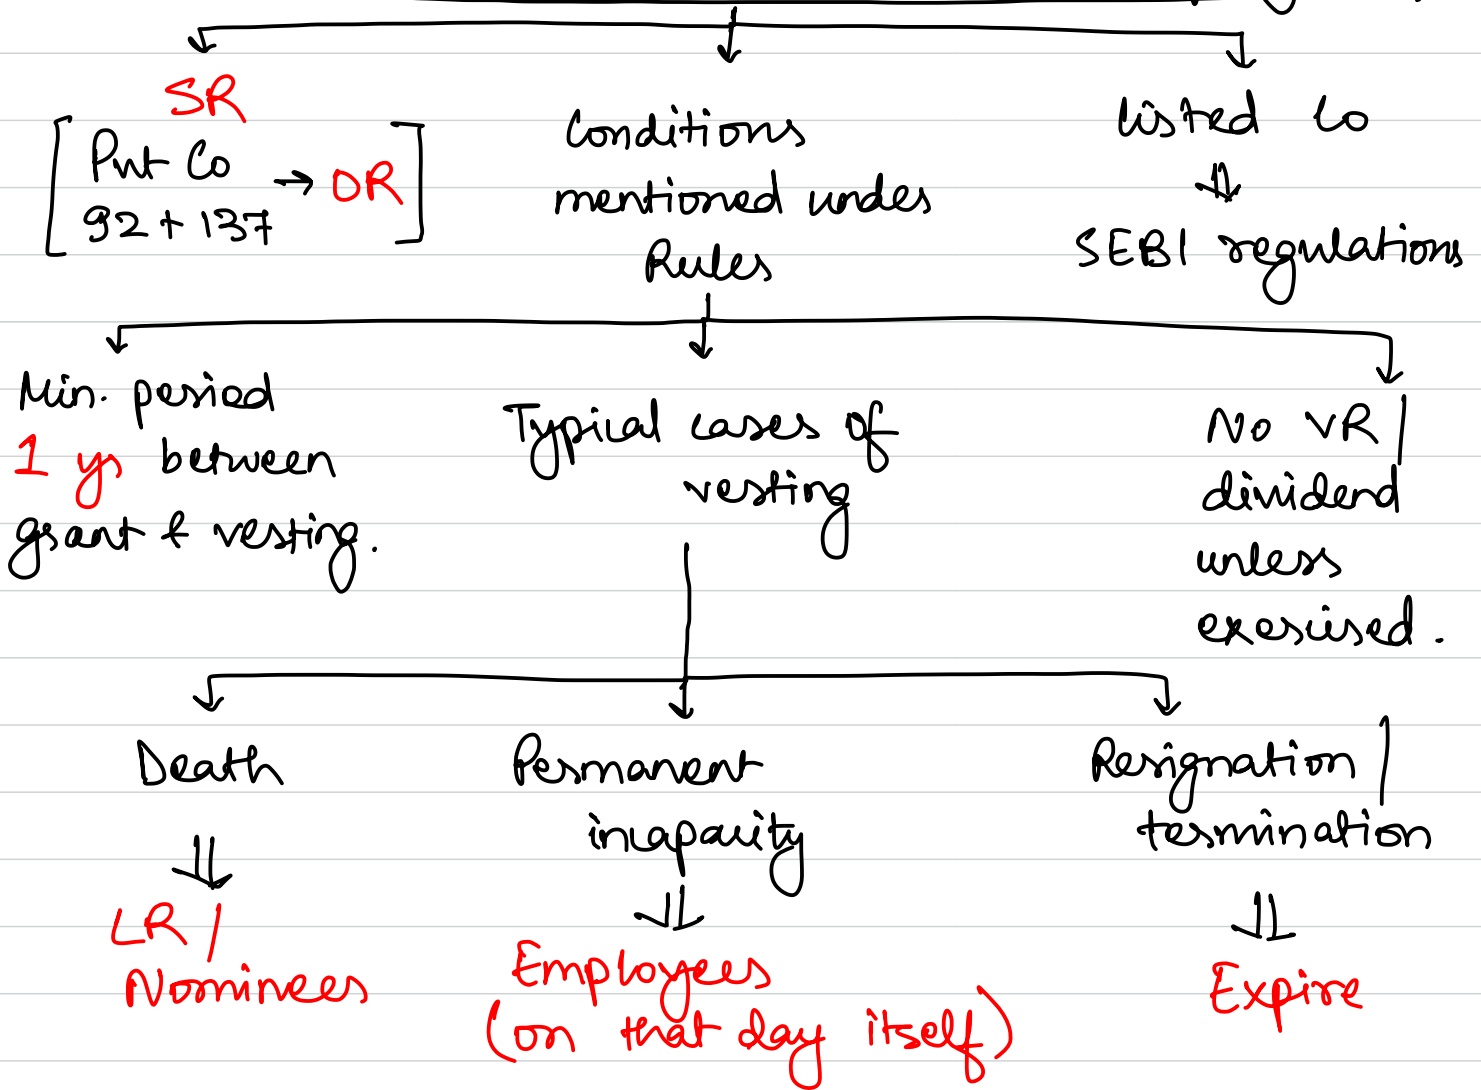 SR
[Pvt Co → OR]
92 + 137
Conditions
mentioned under
Rules
Listed Co
⇓
SEBI regulations
Min. period
1 yr between
grant & vesting.
Typical cases of
vesting
No VR/
dividend
unless
exercised.
Death
⇓
LR/
Nominees
Permanent
incapacity
⇓
Employees
(on that day itself)
Resignation/
termination
⇓
Expire